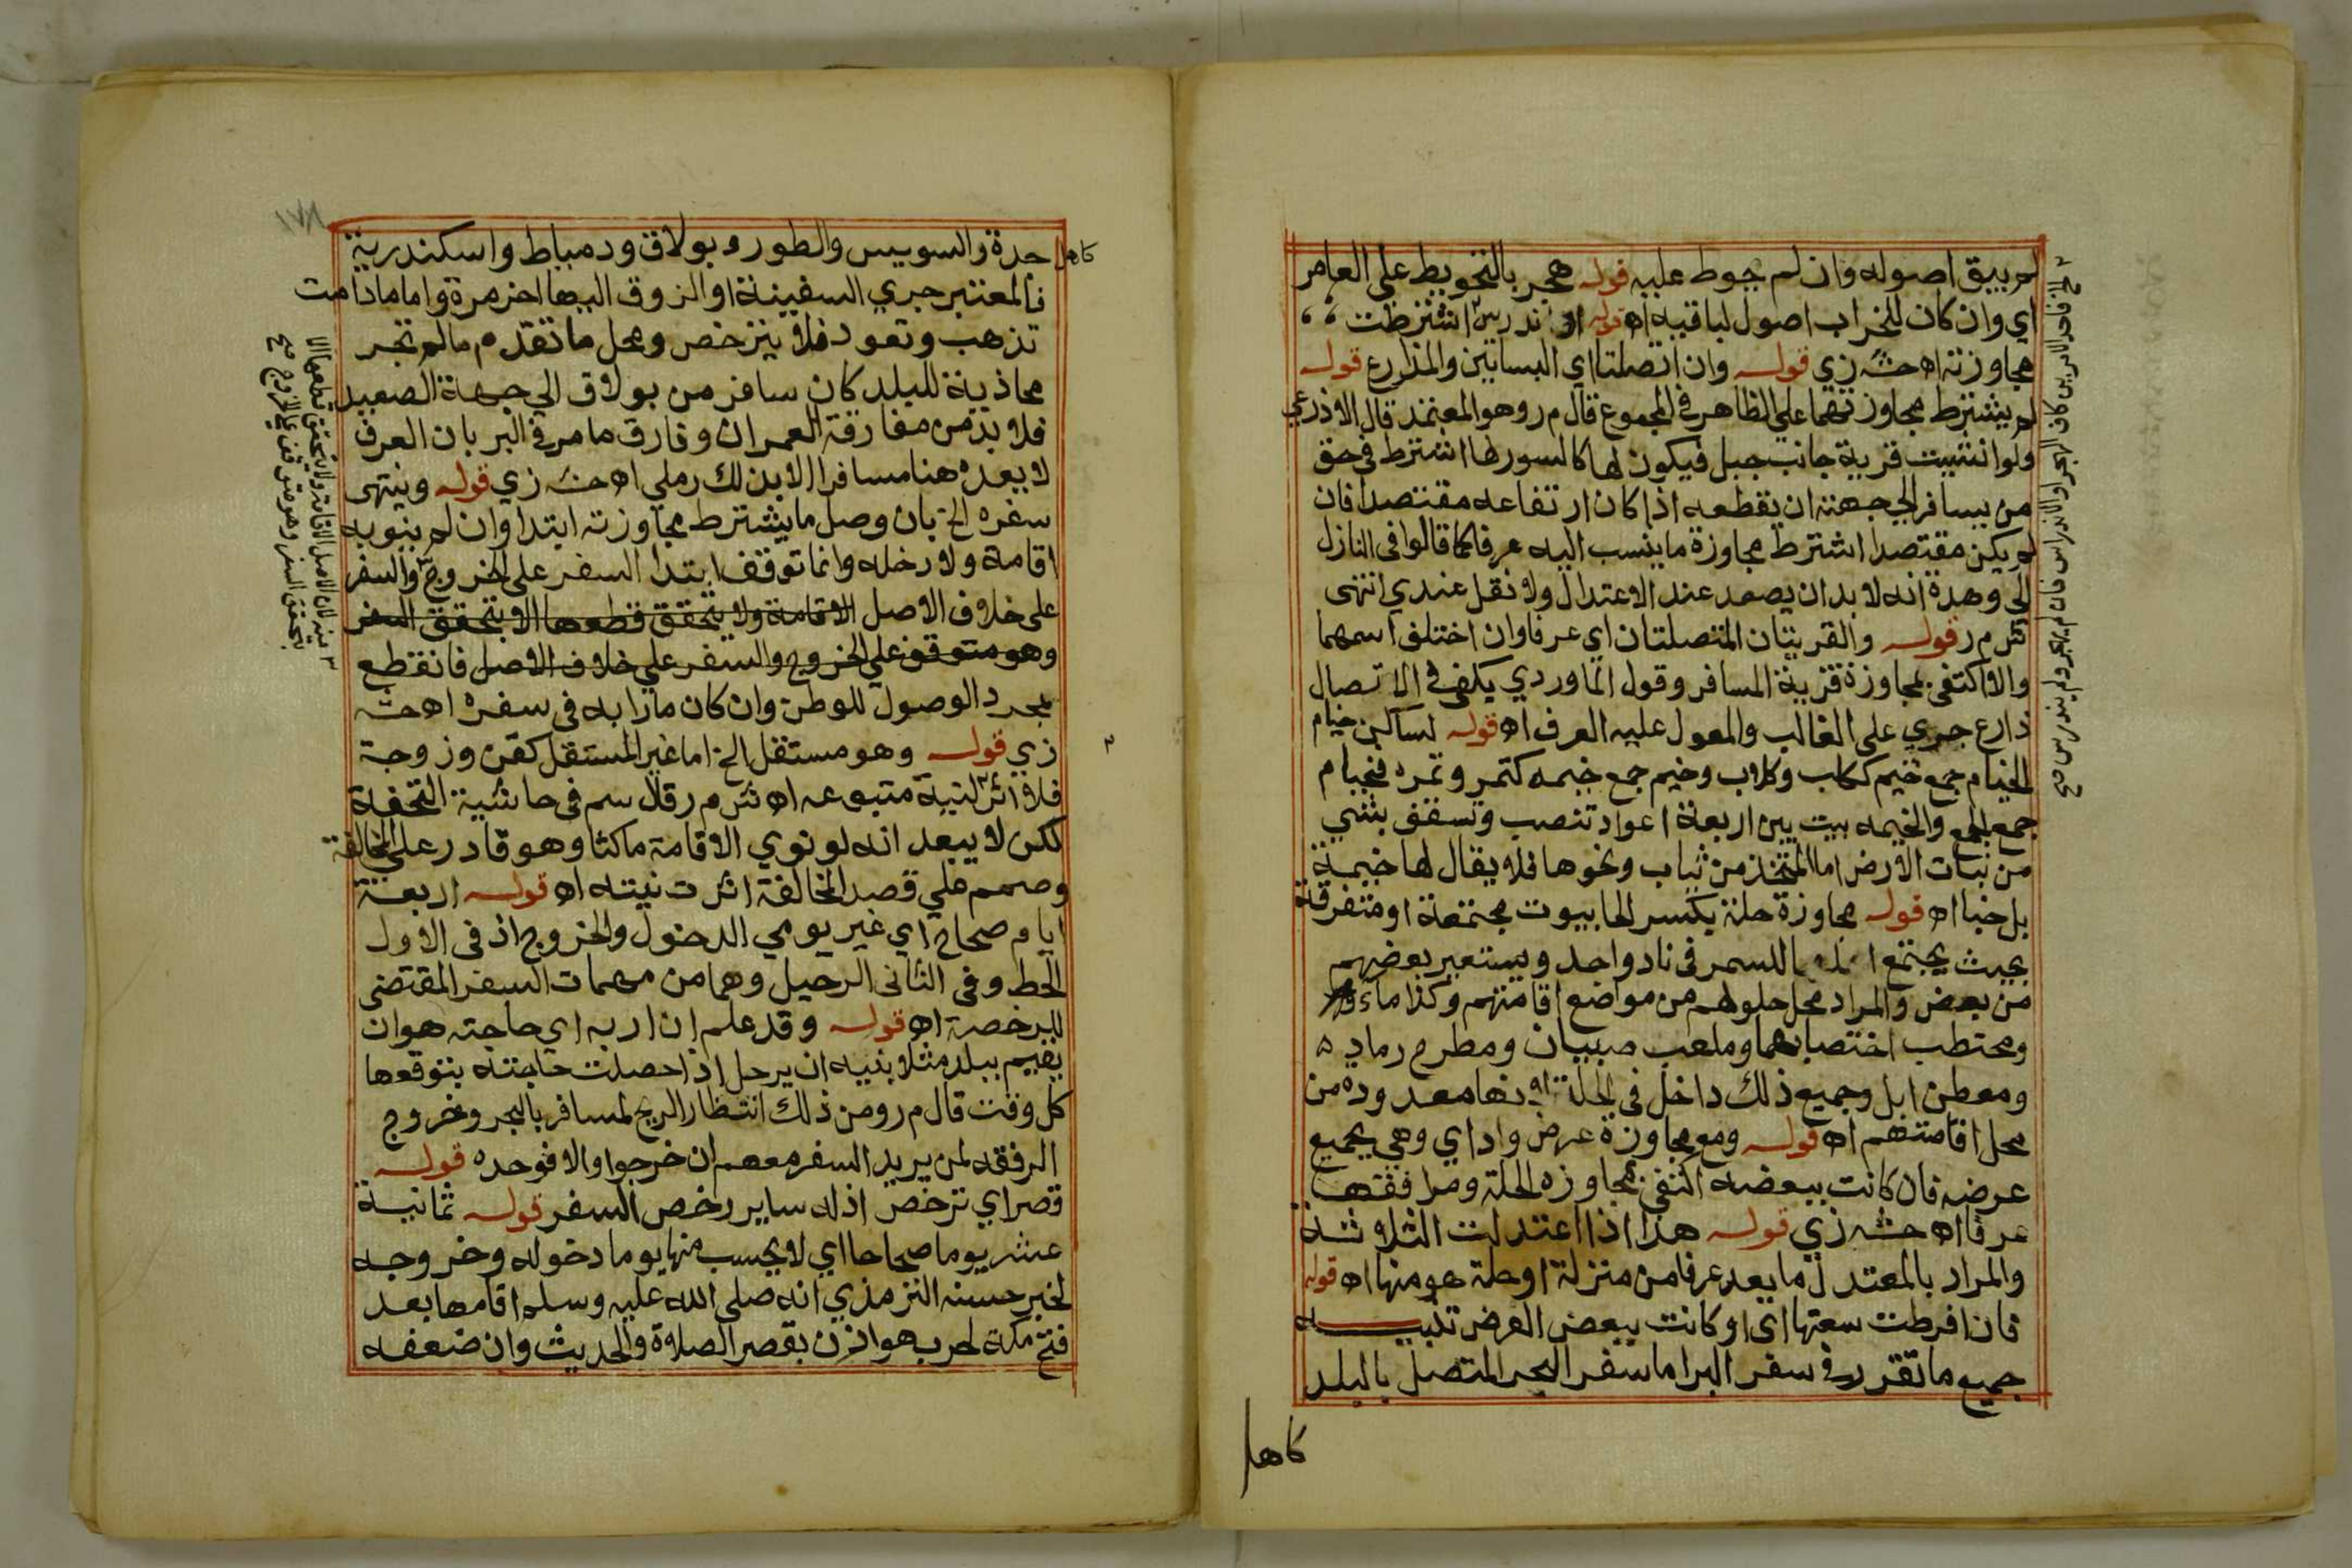 لم يبق اصوله وان لم يحوط عليه قوله هجر بالتحويط على العامر
اي وان كان للخراب اصول لباقيه اه قوله او اندرس اشترطت
مجاوزته اه حش زي قوله وان اتصلتا اي البساتين والمزارع قوله
لم يشترط مجاوزتهما على الظاهر في المجموع قال م ر وهو المعتمد قال الاذرعي
ولو انشيت قرية جانب جبل فيكون لها كالسور لها اشترط في حق
من يسافر الي جهته ان يقطعه اذا كان ارتفاعه مقتصدا فان
لم يكن مقتصدا اشترط مجاوزة ما ينسب اليه عرفا كما قالوا في النازل
الى وهدة انه لا بد ان يصعد عند الاعتدال ولا نقل عندي انتهى
شرم ر قوله والقريتان المتصلتان اي عرفا وان اختلف اسمهما
والا اكتفى بمجاوزة قرية المسافر وقول الماوردي يكفي في الاتصال
ذارع جري على الغالب والمعول عليه العرف اه قوله لساكن خيام
الخيام جمع خيم ككلب وكلاب وخيم جمع خيمه كتمر وتمره فخيام
جمع الجمع والخيمه بيت يبن اربعة اعواد تنصب وتسقف بشي
من نبات الارض اما المتخذ من ثياب ونحوها فلا يقال لها خيمة
بل خبا اه قوله مجاوزة حلة بكسر الحا بيوت مجتمعة او متفرقة
بحيث يجتمع للسمر في ناد واحد ويستعير بعضهم
من بعض والمراد محل حلولهم من مواضع اقامتهم وكذا ماء
ومحتطب اختصا بهما وملعب صبيان ومطرح رماد
ومعطن ابل وجميع ذلك داخل في الحلة نها معدوده من
محل اقامتهم اه قوله ومع مجاوزة عرض واد اي وهي بجميع
عرضه فان كانت ببعضه اكتفي بمجاوزه الحلة ومرافقتها
عرفا اه حش زي قوله هذا اذا اعتدلت الثلاثة
والمراد بالمعتدل ما يعد عرفا من منزلة او حلة هو منها اه قوله
فان افرطت سعتها اي او كانت ببعض العرض تنبيه
جميع ما تقرر في سفر البر اما سفر البحر المتصل بالبلد
كاهل
كاهل حدة والسويس والطور وبولاق ودمياط واسكندرية
فالمعتبر جري السفينة او الزوق اليها اخر مرة واما ما دامت
تذهب وتعود فلا يترخص ومحل ما تقدم ما لم تجر
محاذية للبلد كان سافر من بولاق الي جهة الصعيد
فلا بد من مفارقة العمران وفارق ما مر في البر بان العرف
لا يعده هنا مسافرا الا بذلك رملي اه حش زي قوله وينتهى
سفره الخ بان وصل ما يشترط مجاوزته ابتدا وان لم ينو به
اقامة ولا دخله وانما توقف ابتدا السفر على الخروج والسفر
على خلاف الاصل الاقامة ولا يتحقق قطعها الا بتحقق السفر
وهو متوقف علي الخروج والسفر علي خلاف الاصل فانقطع
بمجرد الوصول للوطن وان كان مارا به في سفره اه حش
زي قوله وهو مستقل الخ اما غير المستقل كقن وزوجة
فلا اثر لنية متبوعه اه شرم ر قال سم في حاشية التحفة
لكن لا يبعد انه لو نوي الاقامة ماكثا وهو قادر على المخالفة
وصمم علي قصد المخالفة اثرت نيته اه قوله اربعة
ايام صحاح اي غير يومي الدخول والخروج اذ في الاول
الحط وفي الثاني الرحيل وهما من مهمات السفر المقتضى
للرخصة اه قوله وقد علم ان اربه اي حاجته هو ان
يقيم ببلد مثلا بنيه ان يرحل اذا حصلت حاجته يتوقعها
كل وقت قال م ر ومن ذلك انتظار الريح لمسافر بالبحر وخروج
الرفقه لمن يريد السفر معهم ان خرجوا والا فوحده قوله
قصر اي ترخص اذ له ساير رخص السفر قوله ثمانية
عشر يوما صحاحا اي لا يحسب منها يوما دخوله وخروجه
لخبر حسنه الترمذي انه صلى الله عليه وسلم اقامها بعد
فتح مكة لحرب هوازن بقصر الصلاة والحديث وان ضعفه